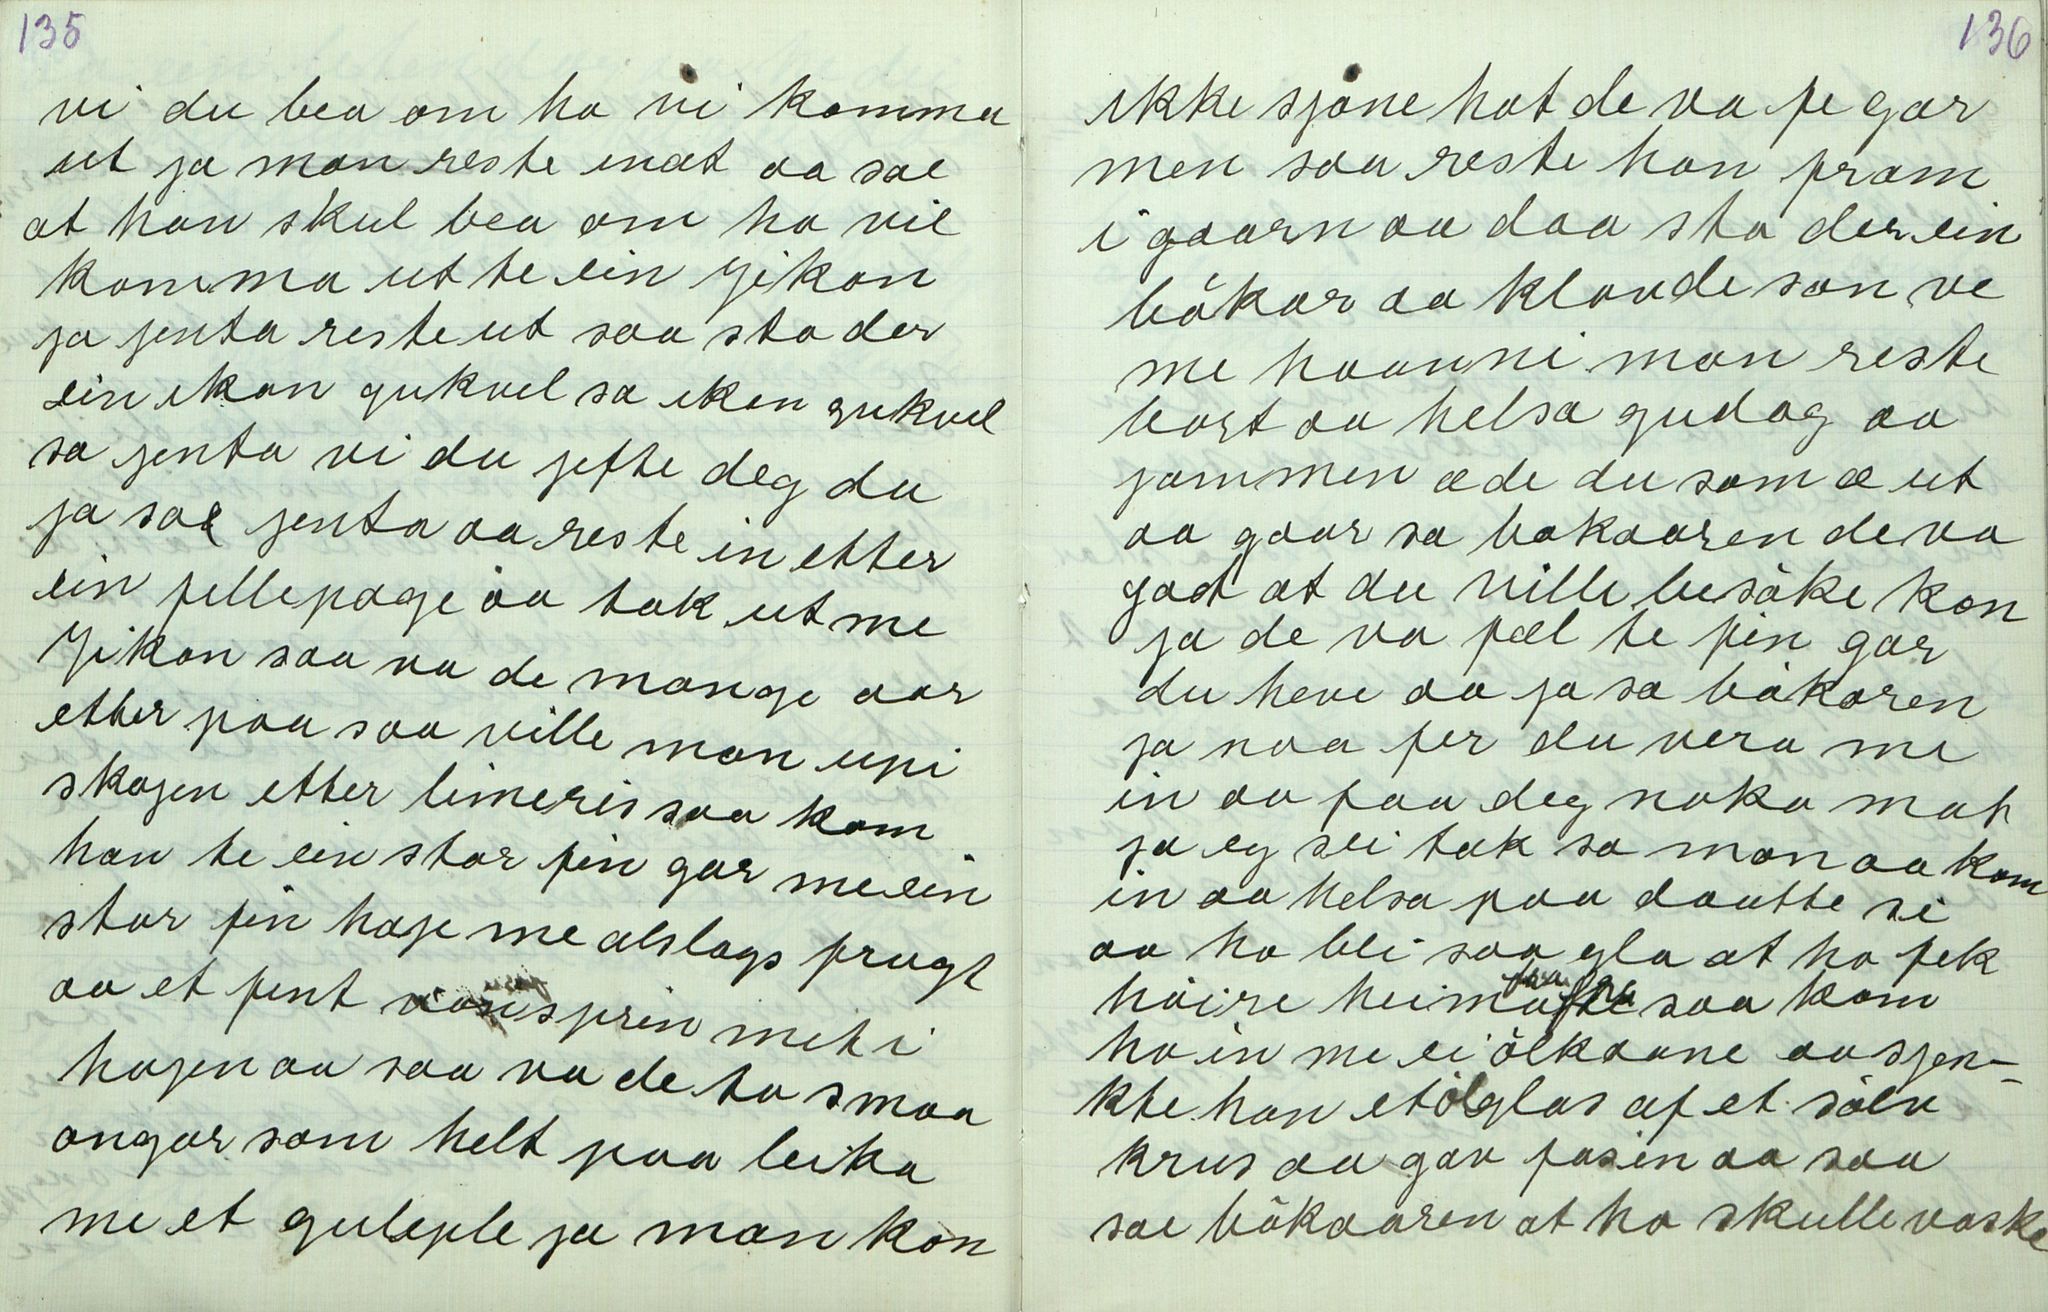 135
vi du bea om ho vi komma
ut ja man reste inat aa sae
at han skul bea om ho vil
komma ut te ein Jikan
ja jenta reste ut saa sto der
ein ikan gukvel sa iken gukvel
sa jenta vi du jefte deg du
ja sae jenta aa reste in etter
ein fillepage aa tok ut me
Jikan saa va de mange aar
etter paa saa ville man upi
skogen etter limeris saa kom
han te ein stor fin gar me ein
stor fin hage me alslags frugt
aa et fint sprin mit i
hagen aa saa va de to smaa
ongar som helt paa leika
me et guleple ja man kon
136
ikke sjöne hot de va fe gar
men saa reste han fram
i gaarn aa daa sto der ein
bökar aa klavde son ve
me haanni man reste
bort aa helsa gudag aa
jammen æde du som æ ut
aa gaar sa bakaaren de va
got at du ville besöke kon
ja de va fæl te fin gar
du heve aa ja sa bökaren
ja naa fer du vera me
in aa faa deg noko mat
ja eg sei tak sa man aa kom
in aa helsa paa daatte si
aa ho bli saa gla at ho fek
höire heima fra saa kom
ho in me ei ölkaane aa sjen-
kte han et ölglas af et sölv
krus aa gav fasin aa saa
sae bökaaren at ho skulle vaske